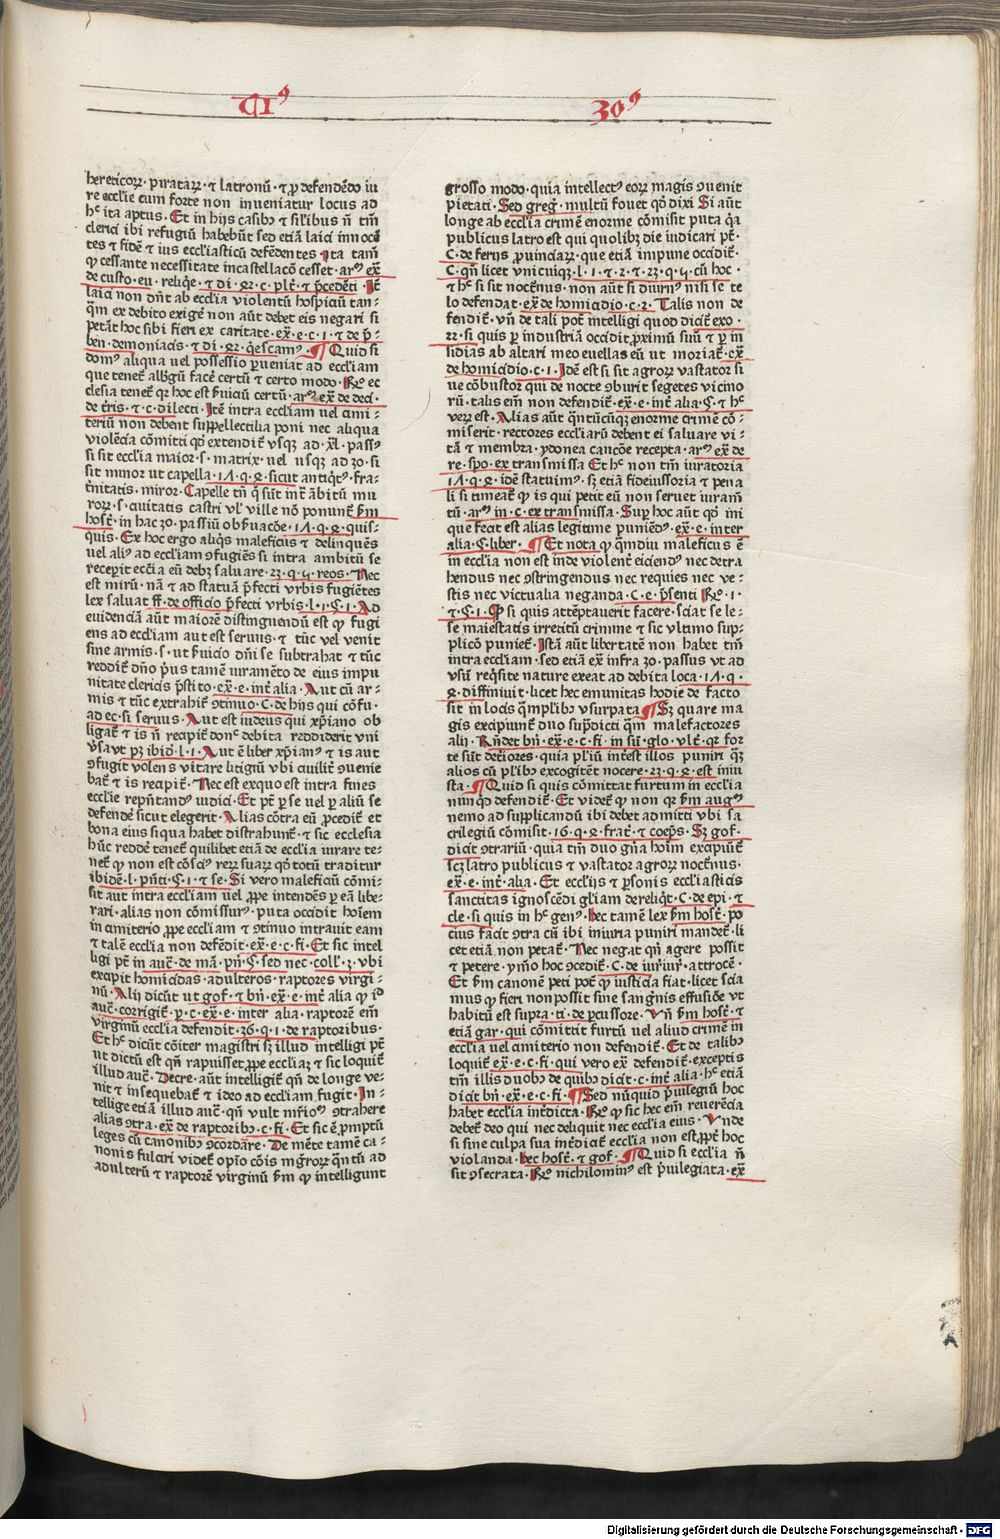 Tꝰ 30ꝰ
hereticoꝝ· piratarꝝ· ⁊ latronū· ⁊ ꝓ defendēdo iu
re ecclīe cum forte non inueniatur locus ad
hᶜ ita aptus· Et in hijs casibꝰ ⁊ silibus ñ tm̄
clerici ibi refugiū habebūt sed etiā laici innocē
tes ⁊ fidē ⁊ ius eccl̓iasticū defēdentes Ita tam̄
ꝙ cessante necessitate incastellacō cesset· arᵒ ex̄
de custo· eu· reliqe· ⁊ di· ꝯ2· c· plēt· ⁊ p̄cedēti· It̄
laici non dn̄t ab eccl̓ia violentū hospiciū tan-
q̄m ex debito exigē non aūt debet eis negari si
petāt hoc sibi fieri ex caritate· ex̄· e· c· 1· ⁊ de p̄-
ben· demoniacis· ⁊ di· ꝯ2· qescamꝰ· ¶ Quid si
domꝰ aliqua uel possessio ꝑueniat ad eccl̓iam
que tenet̄ alb̓gū facē certū ⁊ certo modo· Rᵒ ec
clesia tenet̄ qr hoc est ẜuiciū certū· arᵒ ex̄ de deci·
de t̄ris· ⁊ c· dilecti· Itē intra eccl̓iam uel cimi-
teriū non debent suppellectilia poni nec aliqua
violēcia cōmitti qđ extendit̄ vsqꝫ ad· xl· passꝰ
si sit eccl̓ia maior· s· matrix· uel usqꝫ ad 30· si
sit minor ut capella· 17· q· ꝗ· sicut antiqtꝰ· fra-
t̄nitatis· miror· Capelle tm̄ q̄ sūt int̄ ābitū mu
roꝝ· s· ciuitatis castri vl̓ ville nō ponunt̄ ẜm
host̄· in hac 30· passiū obẜuacōe· 17· q· ꝗ· quis-
quis· Ex hoc ergo aliq̄s maleficus ⁊ delinquēs
uel aliꝰ ad eccl̓iam ꝯfugiēs si intra ambitū se
receperit ecc̄ia eū debꝫ saluare· 23· q· 5· reos· Nec
est mirū· nā ⁊ ad statuā p̄fecti vrbis fugiētes
lex saluat ff· de officio p̄fecti vrbis· l· 1· §· 1· Ad
euidenciā aūt maiorē distinguendū est ꝙ fugi
ens ad eccl̓iam aut est seruus· ⁊ tūc vel venit
sine armis· s· ut ẜuicio dn̄i se subtrahat ⁊ tūc
reddit̄ dn̄o p̄us tamē iuramēto de eius impu
nitate clericis p̄stito· ex̄· e· int̄ alia· Aut cū ar-
mis ⁊ tūc extrahit̄ ꝯtinuo· C· de hijs qui cōfu·
ad ec· si seruus· Aut est iudeus qui xp̄iano ob
ligat̄ ⁊ is ñ recipit̄ donᶜ debita reddiderit vni
v̓sa vt pꝫ ibid̄· l· 1· Aut ē liber xp̄ianꝰ ⁊ is aut
ꝯfugit volens vitare litigiū vbi ciuilit̄ ꝯuenie
bat̄ ⁊ is recipit̄· Nec est exquo est intra fines
ecclīe repn̄tandꝰ iudici· Et pt̄ ꝑ se uel ꝑ aliū se
defendē sicut elegerit· Alias cōtra eū ꝓcedit̄ et
bona eius si qua habet distrahunt̄· ⁊ sic ecclesia
hūc reddē tenet̄ quilibet etiā de eccl̓ia iurare te-
net̄ ꝙ non est cōsciꝰ reꝝ suaꝝ qđ totū traditur
ibidē· l· pn̄ti· §· 1· ⁊ se· Si vero maleficiū cōmi-
sit aut intra eccl̓iam uel ꝓpe intendēs ꝑ eā libe-
rari· alias non cōmissurꝰ· puta occidit hoīem
in cimiterio ꝓpe eccl̓iam ⁊ ꝯtinuo intrauit eam
⁊ talē eccl̓ia non defēdit· ex̄· e· c· fi· Et sic intel
ligi pt̄ in auc̄· de mā· pn̄· §· sed nec· coll̓· 3· vbi
excipit homicidas· adulteros· raptores virgi-
nū· Alij dicūt ut gof· ⁊ bn̄· ex̄· e· int̄ alia ꝙ iđ
auc̄· corrigit̄· ꝑ· c· ex̄· e· inter alia· raptorē em̄
virginū eccl̓ia defendit· 36· q· 1· de raptoribus·
Et hᶜ dicūt cōiter magistri sꝫ illud intelligi pt̄
ut dictū est qn̄ rapuisset ꝓpe eccl̓iaꝫ ⁊ sic loquit̄
illud auc̄· Decre· aūt intelligit̄ qn̄ de longe ve-
nit ⁊ insequebat̄ ⁊ ideo ad eccl̓iam fugit· In-
tellige etiā illud auc̄· qn̄ vult mr̄ioꝰ ꝯtrahere
alias ꝯtra· ex̄ de raptoribꝰ· c· fi· Et sic ē ꝓmptū
leges cū canonibꝰ ꝯcordare· De mēte tamē ca-
nonis fulciri videt̄ opīo cōis mgr̄oꝝ qn̄tū ad
adulterū ⁊ raptorē virginū ẜm ꝙ intelligunt
grosso modo· quia intellectꝰ eoꝝ magis ꝯuenit
pietati· Sed greg̓· multū fouet qđ dixi Si aūt
longe ab eccl̓ia crimē enorme cōmisit puta q̄a
publicus latro est qui quolibꝫ die iudicari pt̄·
C· de ferijs ꝓuinciaꝝ· que etiā impune occidit̄·
C· qn̄ licet vnicuiqꝫ· l· 1· ⁊ 2· ⁊ 23· q· 5· cū hoc ·
⁊ hᶜ si sit nocēnus· non aūt si diurnꝰ nisi se te
lo defendat· ex̄ de homicidio· c· 2· Talis non de
fendit̄· vn̄ de tali pot̄ intelligi quod dicit̄ exo·
22· si quis ꝑ industriā occidit ꝓximū suū ⁊ ꝑ in
sidias ab altari meo euellas eū ut moriat̄· ex̄
de homicidio· c· 1· Idē est si sit agroꝝ vastator si
ue cōbustor qui de nocte ꝯburit segetes vicino
rū· talis em̄ non defendit̄· ex̄· e· int̄ alia· §· ⁊ hᶜ
veꝝ est· Alias aūt qn̄tūcūqꝫ enorme crimē cō-
miserit· rectores eccl̓iarū debent ei saluare vi-
tā ⁊ membra· ydonea caucōe recepta· arᵒ ex̄ de
re· spo· ex transmissa Et hᶜ non tm̄ iuratoria
17· q· ꝗ· idē statuimꝰ· sꝫ etiā fideiussoria ⁊ pena
li si timeat̄ ꝙ is qui petit eū non seruet iuram̄
tū· arᵒ in· c· ex transmissa· Sup hoc aūt qđ ini
que fecit est alias legitime puniēdꝰ· ex̄· e· inter
alia· §· liber· ¶ Et nota ꝙ q̄mdiu maleficus ē
in eccl̓ia non est inde violent̄ eiciendꝰ nec detra
hendus nec ꝯstringendus nec requies nec ve-
stis nec victualia neganda· C· e· p̄senti Rᵒ· 1·
⁊· §· 1· Qđ si quis attēptauerit facere· sciat se le-
se maiestatis irretitū crimine ⁊ sic vltimo sup-
plicō puniet̄· Istā aūt libertatē non habet tm̄
intra eccl̓iam· sed etiā ex̄ infra 30· passus vt ad
vsū req̓site nature exeat ad debita loca· 17· q·
ꝗ· diffiniuit· licet hec emunitas hodie de facto
sit in locis q̄mplibꝰ vsurpata ¶ Sꝫ quare ma
gis excipiunt̄ duo sup̄dicti q̄m malefactores
alij· Rn̄det bn̄· ex̄· e· c· fi· in sū· glo· vlt̄· qr for
te sūt det̄iores· quia pl̓iū int̄est illos puniri qꝫ
alios cū pl̓ibꝰ excogitēt nocere· 23· q· ꝗ· est iniu
sta· ¶ Quid si quis cōmittat furtum in eccl̓ia
nūnqđ defendit̄· Et videt̄ ꝙ non qr ẜm augꝰ
nemo ad supplicandū ibi debet admitti vbi sa
crilegiū cōmisit· 16· q· ꝗ· frat̄· ⁊ coep̄s· Sꝫ gof·
dicit ꝯtrariū· quia tm̄ duo gn̄a hoīm excipiūt̄
scꝫ latro publicus ⁊ vastator agroꝝ nocēnus·
ex̄· e· int̄· alia· Et eccl̓ijs ⁊ ꝑsonis eccl̓iasticis
sanctitas ignoscēdi gl̓iam dereliqt̄· C· de epi· ⁊
cle· si quis in hᶜ genꝰ· hec tamē lex ẜm host̄· po
cius facit ꝯtra cū ibi iniuria puniri mandet̄· li
cet etiā non petat̄· Nec negat qn̄ agere possit
⁊ petere· ymo hoc ꝯcedit̄· C· de iurꝭiurꝭ· attrocē·
Et ẜm canonē peti pot̄ ꝙ iusticia fiat· licet scia
mus ꝙ fieri non possit sine sang̓nis effusiōe vt
habitū est supra· ti· de ꝑcussore· Vn̄ ẜm host̄· ⁊
etiā gar· qui cōmittit furtū uel aliud crimē in
eccl̓ia uel cimiterio non defendit̄· Et de talibꝰ
loquit̄ ex̄· e· c· fi· qui vero ex̄ defendit̄· exceptis
tm̄ illis duobꝰ de quibꝰ dicit· c· int̄ alia· hᶜ etiā
dicit bn̄· ex̄· e· c· fi· ¶ Sed nūquid p̄uilegiū hoc
habet eccl̓ia int̄dicta· Rᵒ ꝙ sic hec em̄ reuerēcia
debet̄ deo qui nec deliquit nec eccl̓ia eius· Vnde
si sine culpa sua int̄dicit̄ eccl̓ia non est ꝓpt̄ hoc
violanda· hec host̄· ⁊ gof· ¶ Quid si eccl̓ia ñ
sit ꝯsecrata· Rᵒ nichilominꝰ est p̄uilegiata· ex̄
Digitalisierung gefördert durch die Deutsche Forschungsgemeinschaft · DFG